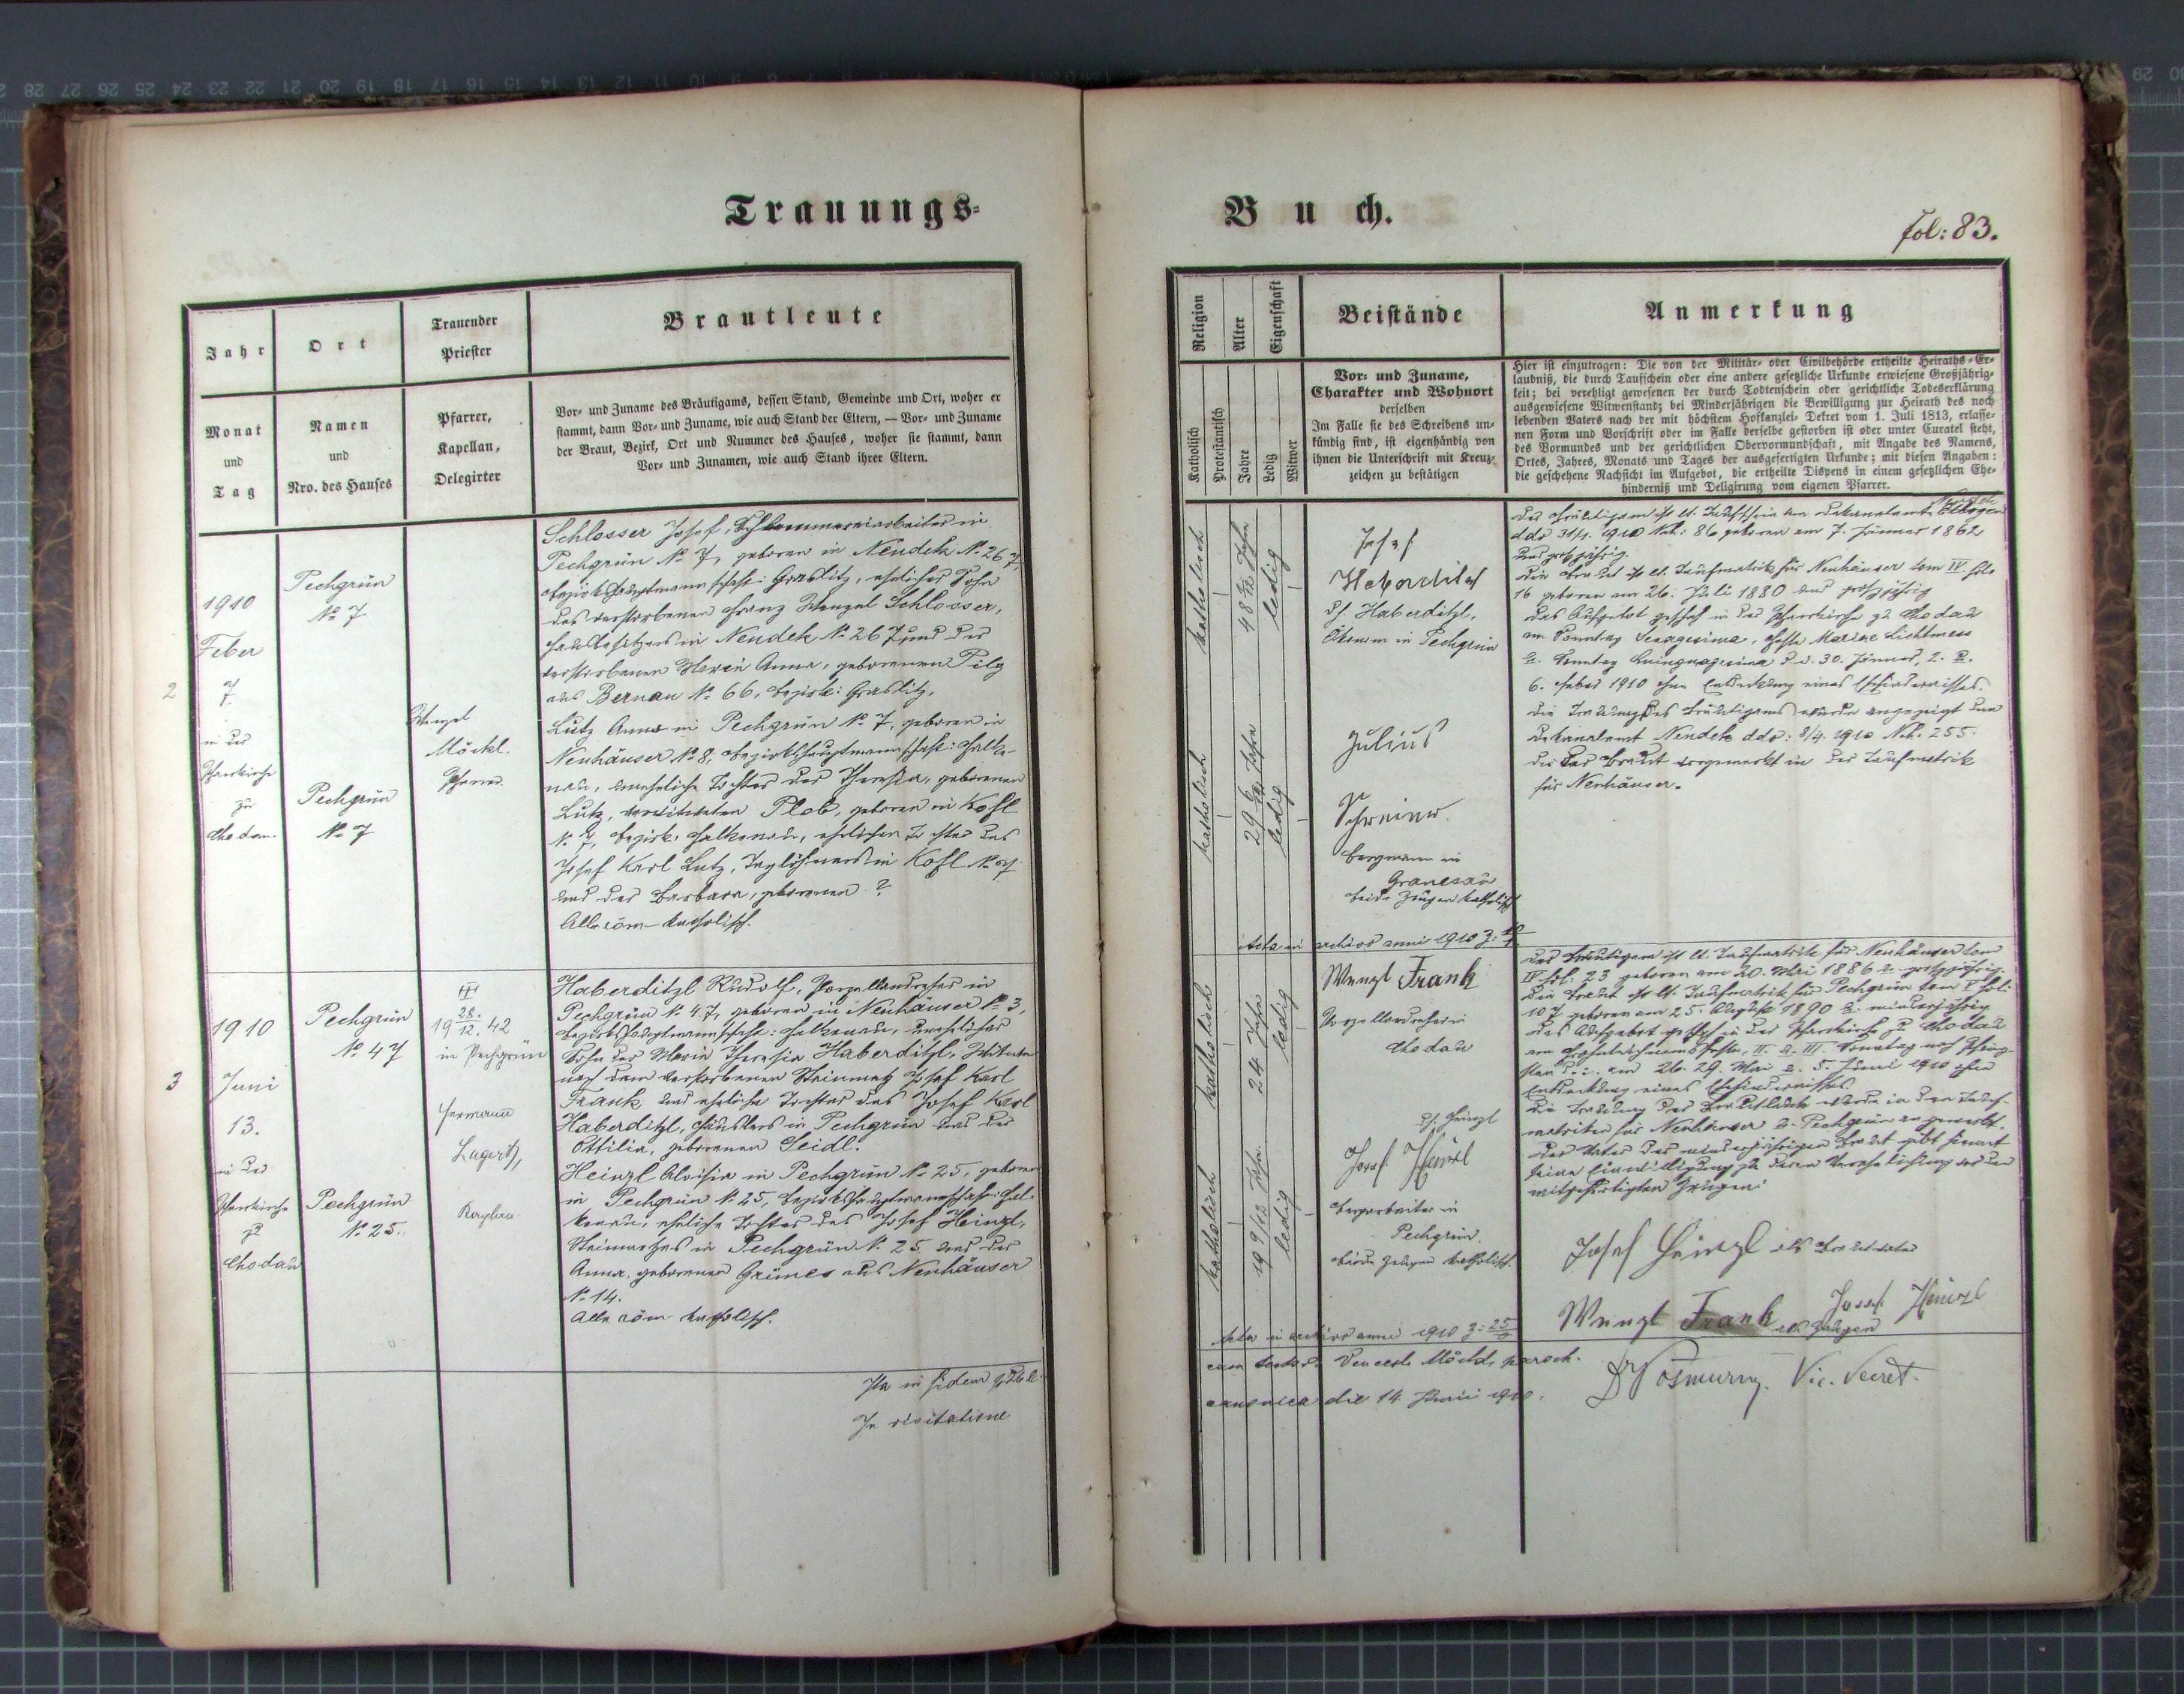 Trauungs-
Jahr
Ort
Trauender
Priester
Brautleute
Monat
und
Tag
Namen
und
Nro. des Hauses
Pfarrer,
Kapellan,
Delegirter
Vor- und Zuname des Bräutigams, dessen Stand, Gemeinde und Ort, woher er
stammt, dann Vor- und Zuname, wie auch Stand der Eltern, — Vor- und Zuname
der Braut, Bezirk, Ort und Nummer des Hauses, woher sie stammt, dann
Vor- und Zunamen, wie auch Stand ihrer Eltern.
2
1910
Feber
7.
in der
Pfarrkirche
zu
Chodau
Pechgrün
No 7
Pechgrün
No 7
Wenzel
Möckl.
Pfarrer.
Schlosser Josef, in
Pechgrün No 7, geboren in Neudek No 267,
Bezirkshauptmannschaft: Graslitz, ehelicher Sohn
des verstorbenen Franz Wenzel Schlosser,
Hausbesitzers in Neudek No 267 und der
verstorbenen Maria Anna, geborenen Pilz
aus Bernau No 66, Bezirk: Graslitz.
Lutz Anna in Pechgrün No 7, geboren in
Neuhäuser No 8, Bezirkshauptmannschaft: Falke-
nau, uneheliche Tochter der Theresia, geborenen
Lutz, Plob, geboren in Kösl
No 7, Bezirk: Falkenau, ehelichen Tochter des
Josef Karl Lutz, Taglöhners in Kösl No 7
und der Barbara, geborenen ?
Alle röm-katholisch.
3
1910
Juni
13.
in der
Pfarrkirche
zu
Chodau
Pechgrün
No 47
Pechgrün
No 25.
28.
19 12. 42
in Pechgrün
Hermann
Lugert,
Kaplan
Haberditzl Rudolf, Porzellandreher in
Pechgrün No 47, geboren in Neuhäuser No 3,
Bezirkshauptmannschaft: Falkenau, unehelicher
Sohn der Maria Theresia Haberditzl, Witwe
nach dem verstorbenen Steinmetz Josef Karl
Frank und eheliche Tochter des Josef Karl
Haberditzl, Häuslers in Pechgrün und der
Ottilia, geborenen Seidl.
Heinzl Aloisia in Pechgrün No 25, geboren
in Pechgrün No 25, Bezirkshauptmannschaft: Fal-
kenau, eheliche Tochter des Josef Heinzl,
Steinmetzes in Pechgrün No 25 und der
Anna, geborenen Grimes aus Neuhäuser
No 14.
Alle röm-katholisch.
Ita in fidem
In visitatione
Buch.
fol: 83.
Religion
Alter
Eigenschaft
Beistände
Anmerkung
Katholisch
Protestantisch
Jahre
Ledig
Witwer
Vor- und Zuname,
Charakter und Wohnort
derselben
Im Falle sie des Schreibens un-
kündig sind, ist eigenhändig von
ihnen die Unterschrift mit Kreuz-
zeichen zu bestätigen
Hier ist einzutragen: Die von der Militär- oder Civilbehörde ertheilte Heiraths-Er-
laubniß, die durch Taufschein oder eine andere gesetzliche Urkunde erwiesene Großjährig-
keit; bei verehligt gewesenen der durch Todtenschein oder gerichtliche Todeserklärung
ausgewiesene Witwenstand; bei Minderjährigen die Bewilligung zur Heirath des noch
lebenden Vaters nach der mit höchstem Hofkanzlei-Dekret vom 1. Juli 1813, erlasse-
nen Form und Vorschrift oder im Falle derselbe gestorben ist oder unter Curatel steht,
des Vormundes und der gerichtlichen Obervormundschaft, mit Angabe des Namens,
Ortes, Jahres, Monats und Tages der ausgefertigten Urkunde; mit diesen Angaben:
die geschehene Nachsicht im Aufgebot, die ertheilte Dispens in einem gesetzlichen Ehe-
hinderniß und Deligirung vom eigenen Pfarrer.
katholisch
48 1/12 Jahre
ledig
katholisch
29 6/12 Jahre
ledig
Josef
Haberditzl
d. Haberditzl,
Ökonom in Pechgrün
Julius
Schreiner
Bergmann in
Granesau
beide Zeugen katholisch
Acta in archivo anni 1910
Neudek
Der Bräutigam ist lt. Taufschein vom Dekanalamt Ellbogen
ddo 31/1. 1910 Nch: 86 geboren am 7. Jänner 1862
und großjährig.
Die Braut ist lt. Taufmatrik für Neuhäuser tom IV fol.
16 geboren am 26. Juli 1880 und großjährig
Das Aufgebot geschah in der Pfarrkirche zu Chodau
am Sonntag Sexagesima, Feste Mariae Lichtmess
u. Sonntag Quinquagesima d. i. 30. Jänner, 2. u.
6. Feber 1910 ohne Entdeckung eines Ehehindernisses.
Die Trauung des Bräutigams wurde angezeigt dem
Dekanalamt Neudek ddo: 8/4. 1910 Nch. 255.
die der Braut vorgemerkt in der Taufmatrik
für Neuhäuser.
katholisch
24 Jahre
ledig
katholisch
19 9/12 Jahre
ledig
Wenzl Frank
Porzellandreher in
Chodau
d. Heinzl
Josef Heinzl
Bergarbeiter in
Pechgrün.
beide Zeugen katholisch.
Acta in archivo anni 1910
Der Bräutigam ist lt. Taufmatrik für Neuhäuser tom
IV fol. 23 geboren am 20. Mai 1886 u. großjährig.
Die Braut ist lt. Taufmatrik für Pechgrün tom V fol:
107 geboren am 25. August 1890 u. minderjährig
Das Aufgebot geschah in der Pfarrkirche zu Chodau
am Frohnleichnamsfeste, II. u. III. Sonntag nach Pfing-
sten d. i. am 26. 29. Mai u. 5. Juni 1910 ohne
Entdeckung eines Ehehindernisses.
Die Trauung der Brautleute wurde in den Tauf-
matriken für Neuhäuser u. Pechgrün angemerkt.
Der Vater der minderjährigen Braut gibt hiemit
seine Einwilligung zu deren Verehelichung vor den
mitgefertigten Zeugen:
Josef Heinzl als Brautvater
Wenzl Frank Josef Heinzl
als Zeugen
Möckl, paroch.
canonica die 14. Junii 1910.
Vic. Secret.